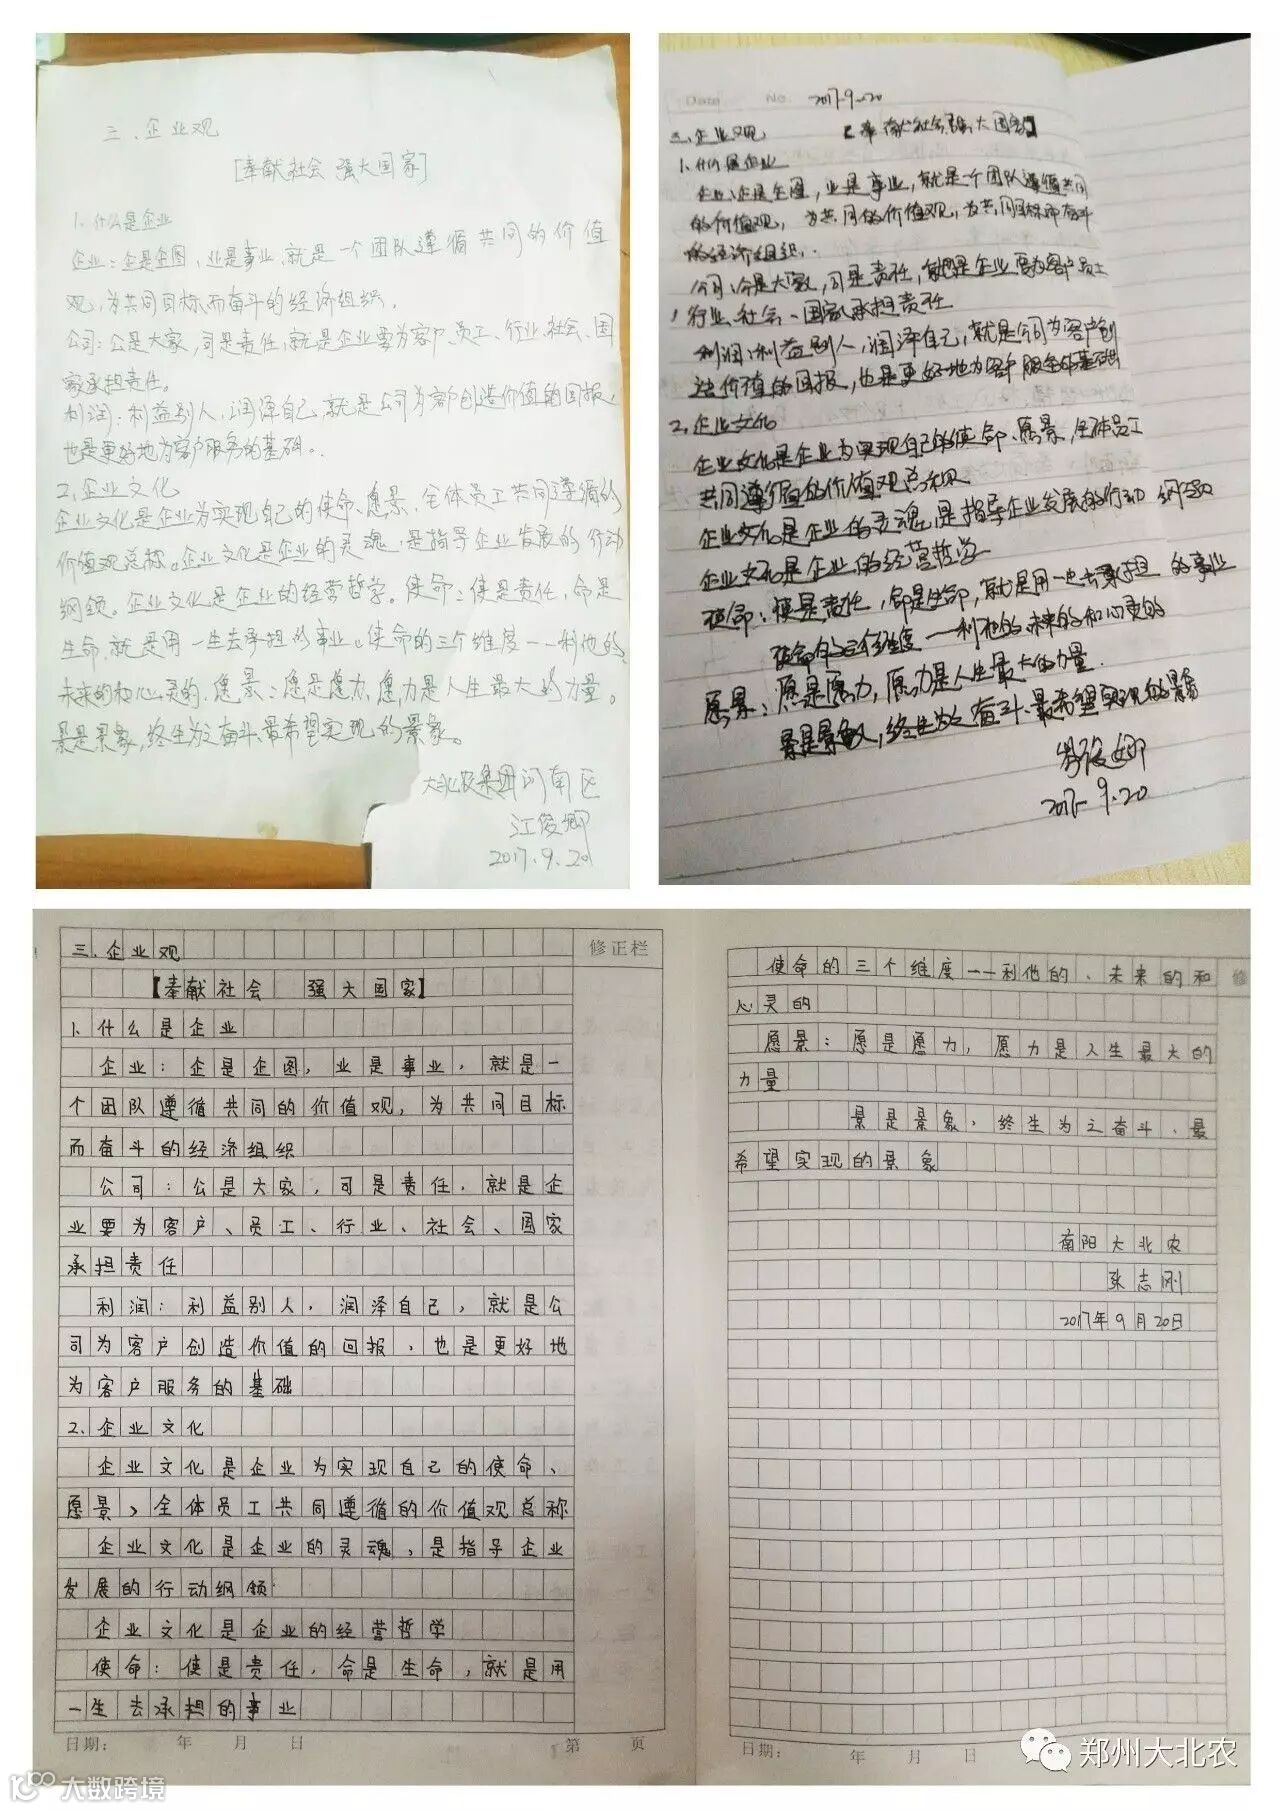 三、企业观
[奉献社会 强大国家]
1、什么是企业
企业：企是企图，业是事业，就是一个团队遵循共同的价值
观，为共同目标而奋斗的经济组织。
公司：公是大家，司是责任，就是企业要为客户、员工、行业、社会、国
家承担责任。
利润：利益别人，润泽自己，就是公司为客户创造价值的回报，
也是更好地为客户服务的基础。
2、企业文化
企业文化是企业为实现自己的使命、愿景、全体员工共同遵循的
价值观总称。企业文化是企业的灵魂，是指导企业发展的行动
纲领。企业文化是企业的经营哲学。使命：使是责任，命是
生命，就是用一生去承担的事业。使命的三个维度——利他的、
未来的和心灵的，愿景：愿是愿力，愿力是人生最大的力量。
景是景象，终生为之奋斗、最希望实现的景象。
大北农集团河南区
江俊卿
2017.9.20
Date No. 2017-9-20
三、企业观 【奉献社会强大国家】
1、什么是企业
企业、企是企图，业是事业，就是一个团队遵循共同
的价值观，为共同的价值观，为共同目标而奋斗
的经济组织.
公司、公是大家，司是责任，就是企业要为客户员工
行业、社会、国家承担责任
利润、利益别人，润泽自己，就是公司为客户创
造价值的回报，也是更好地为客户服务的基础
2、企业文化
企业文化是企业为实现自己的使命、愿景，全体员工
共同遵循的价值观总积
企业文化是企业的灵魂，是指导企业发展的行动纲领
企业文化是企业的经营哲学
使命：使是责任，命是生命，就是用一生去承担的事业
使命的三个维度一利他的、未来的和心灵的
愿景：愿是愿力，愿力是人生最大的力量.
景是景象，终生为之奋斗、最希望实现的景象
2017-9.20
三、企业观 修正栏
【奉献社会 强大国家】
1、什么是企业
企业：企是企图，业是事业，就是一
个团队遵循共同的价值观，为共同目标
而奋斗的经济组织
公司：公是大家，司是责任，就是企
业要为客户、员工、行业、社会、国家
承担责任
利润：利益别人，润泽自己，就是公
司为客户创造价值的回报，也是更好地
为客户服务的基础
2、企业文化
企业文化是企业为实现自己的使命、
愿景、全体员工共同遵循的价值观总称
企业文化是企业的灵魂，是指导企业
发展的行动纲领
企业文化是企业的经营哲学
使命：使是责任，命是生命，就是用
一生去承担的事业
日期： 年 月 日 第 页
使命的三个维度——利他的、未来的和 修
心灵的
愿景：愿是愿力，愿力是人生最大的
力量
景是景象，终生为之奋斗、最
希望实现的景象
南阳大北农
张志刚
2017年9月20日
日期： 年 月 日
郑州大北农
大数跨境